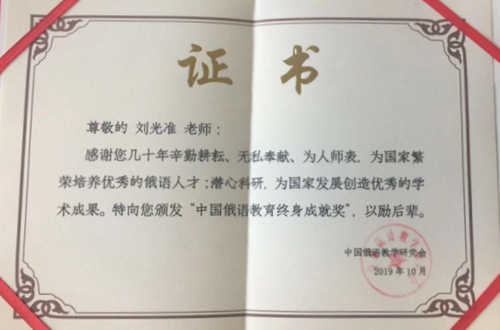 证书
尊敬的 刘光准 老师：
感谢您几十年辛勤耕耘、无私奉献、为人师表，为国家繁
荣培养优秀的俄语人才；潜心科研，为国家发展创造优秀的学
术成果。特向您颁发“中国俄语教育终身成就奖”，以励后辈。
中国俄语教学研究会
2019年10月